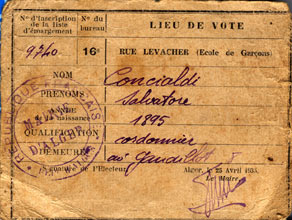 N° d'inscription de la liste d'émargement
N° du bureau
LIEU DE VOTE
9740
16e
RUE LEVACHER (Ecole de Garçons)
NOM Concialdi
PRENOMS Salvatore
1895
QUALIFICATION cordonnier
DEMEURE av.
Signature de l'Electeur
Alger, 25 Avril 1935
Le Maire,
MAIRIE D'ALGER